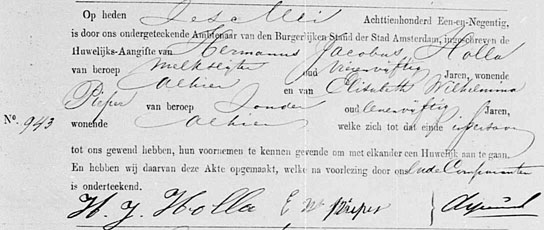 Op heden Zes Mei Achttienhonderd Een-en-Negentig,
is door ons ondergeteekende Ambtenaar van den Burgerlijken Stand der Stad Amsterdam, ingeschreven de
Huwelijks-Aangifte van Hermanus Jacobus Holla
van beroep melkslijter oud vierenvijftig Jaren, wonende
alhier en van Elisabeth Wilhelmina
Pieper van beroep Zonder oud eenenvijftig Jaren,
No. 943 wonende alhier welke zich tot dat einde in persoon
tot ons gewend hebben, hun voornemen te kennen gevende om met elkander een Huwelijk aan te gaan.
En hebben wij daarvan deze Akte opgemaakt, welke na voorlezing door ons en de Comparanten
is onderteekend.
H. J. Holla E W Pieper